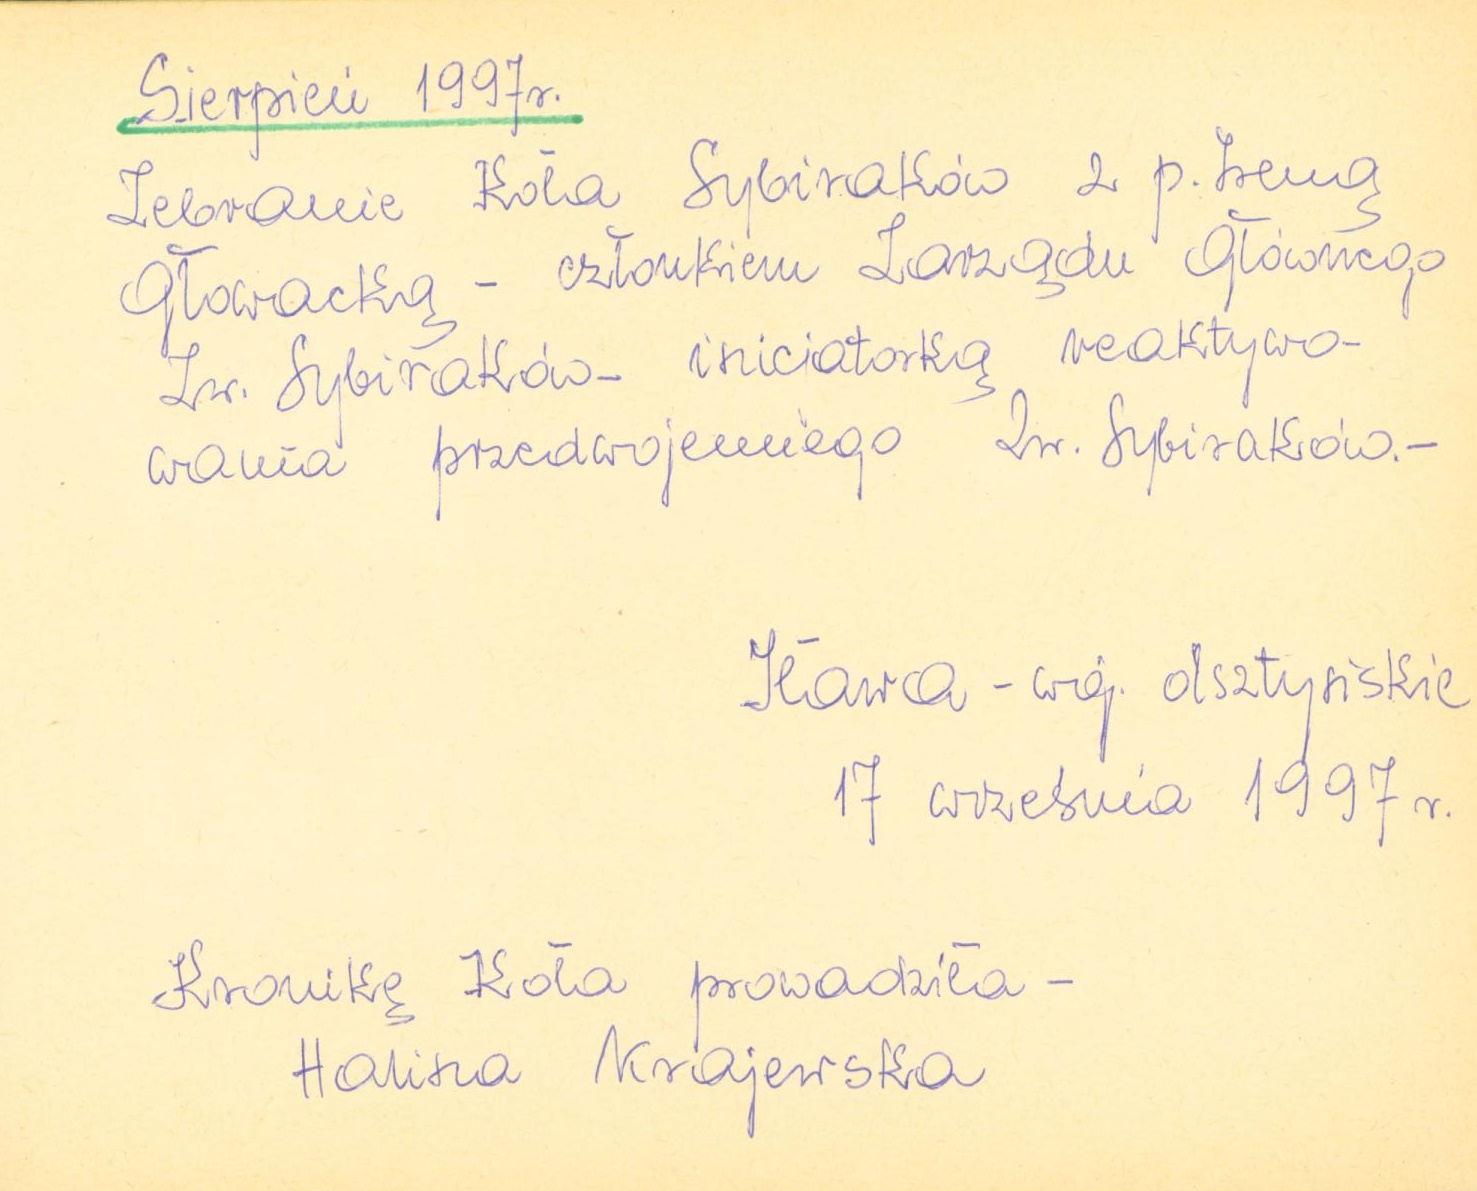 Sierpień 1997r.
Zebranie Koła Sybiraków z p. Ireną
Głowacką - członkiem Zarządu Głównego
Zw. Sybiraków - inicjatorką reaktywo-
wania przedwojennego Zw. Sybiraków.-
Iława - woj. olsztyńskie
17 września 1997 r.
Kronikę Koła prowadziła -
Halina Krajewska